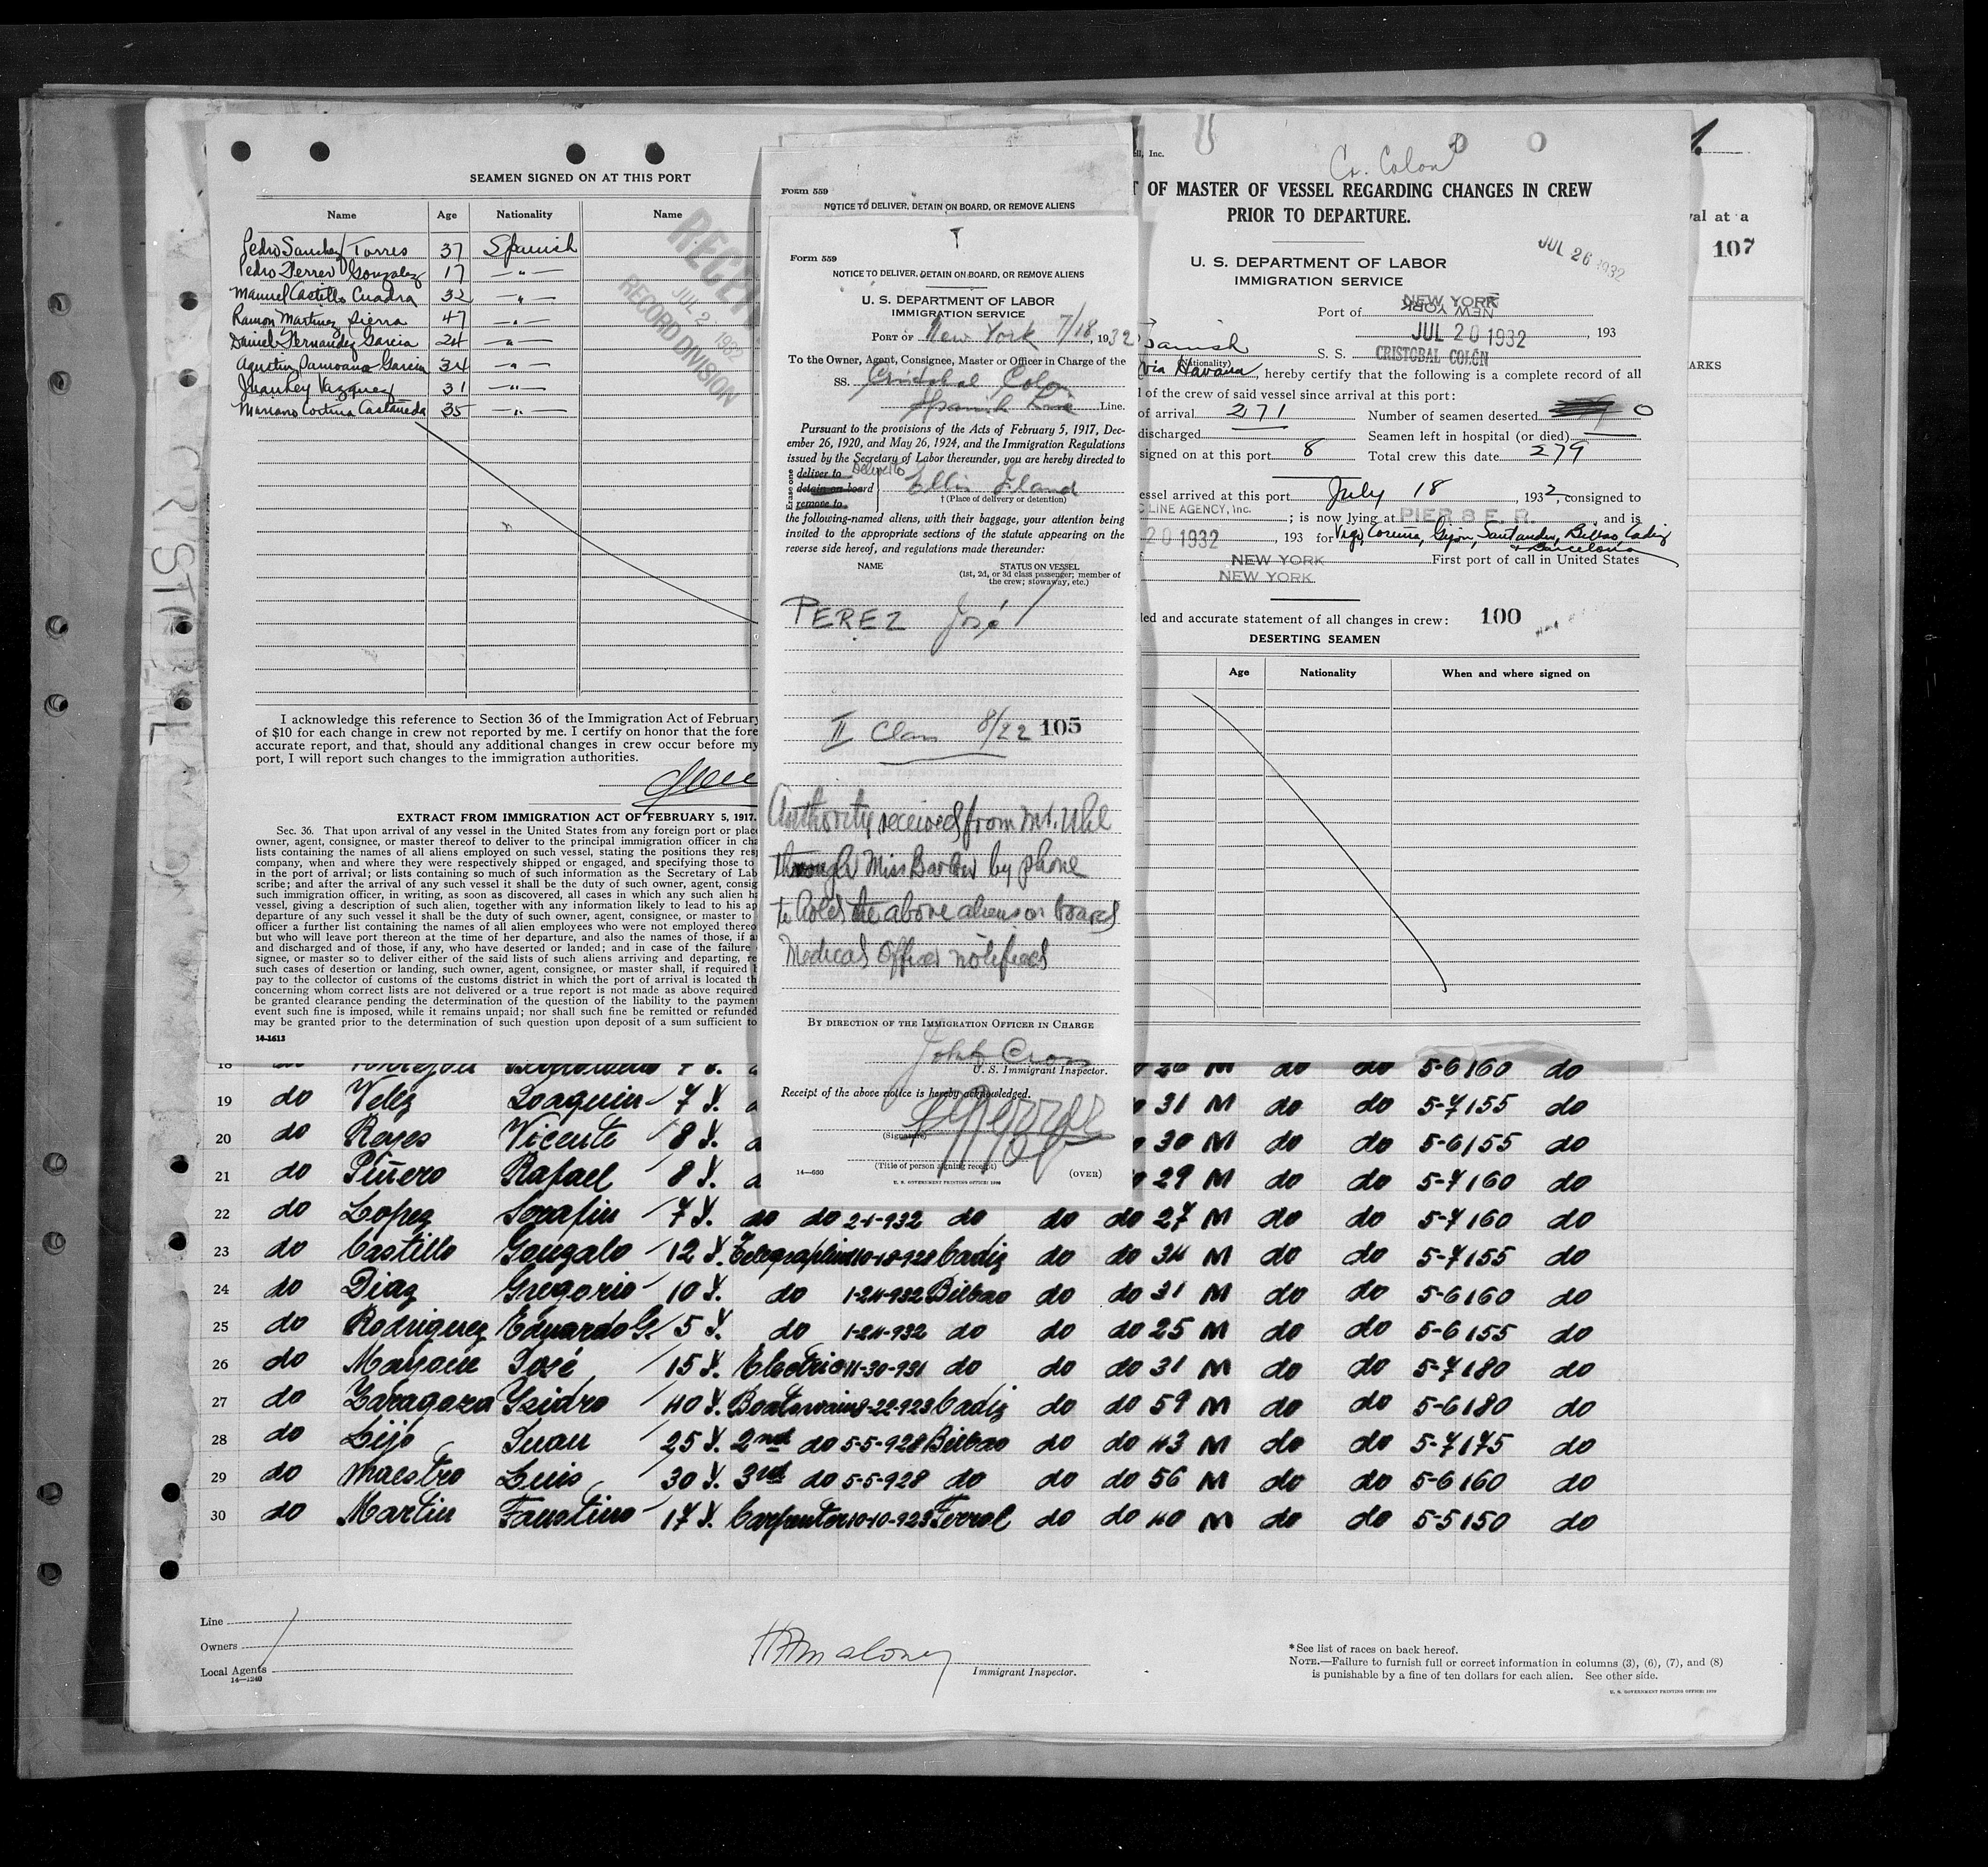 SEAMEN SIGNED ON AT THIS PORT
Name Age Nationality Name
Pedro Sanchez Torres 37 Spanish
Pedro Ferrer Gonzalez 17 — " —
Manuel Castillo Cuadra 32 — " —
Ramon Martinez Sierra 47 — " —
Daniel Fernandez Garcia 24 — " —
Agustin Garcia 34 — " —
Juan Rey Vazquez 31 — " —
Mariano Cortina Castañeda 35 — " —
JUL 2 1932
RECORD DIVISION
I acknowledge this reference to Section 36 of the Immigration Act of February
of $10 for each change in crew not reported by me. I certify on honor that the fore
accurate report, and that, should any additional changes in crew occur before my
port, I will report such changes to the immigration authorities.
EXTRACT FROM IMMIGRATION ACT OF FEBRUARY 5, 1917.
Sec. 36. That upon arrival of any vessel in the United States from any foreign port or place
owner, agent, consignee, or master thereof to deliver to the principal immigration officer in cha
lists containing the names of all aliens employed on such vessel, stating the positions they res
company, when and where they were respectively shipped or engaged, and specifying those to
in the port of arrival; or lists containing so much of such information as the Secretary of Lab
scribe; and after the arrival of any such vessel it shall be the duty of such owner, agent, consig
such immigration officer, in writing, as soon as discovered, all cases in which any such alien h
vessel, giving a description of such alien, together with any information likely to lead to his ap
departure of any such vessel it shall be the duty of such owner, agent, consignee, or master to
officer a further list containing the names of all alien employees who were not employed thereo
but who will leave port thereon at the time of her departure, and also the names of those, if a
and discharged and of those, if any, who have deserted or landed; and in case of the failure
signee, or master so to deliver either of the said lists of such aliens arriving and departing, re
such cases of desertion or landing, such owner, agent, consignee, or master shall, if required
pay to the collector of customs of the customs district in which the port of arrival is located th
concerning whom correct lists are not delivered or a true report is not made as above required
be granted clearance pending the determination of the question of the liability to the payment
event such fine is imposed, while it remains unpaid; nor shall such fine be remitted or refunded
may be granted prior to the determination of such question upon deposit of a sum sufficient to
14-1613
Form 559
NOTICE TO DELIVER, DETAIN ON BOARD, OR REMOVE ALIENS
Form 559
NOTICE TO DELIVER, DETAIN ON BOARD, OR REMOVE ALIENS
U. S. DEPARTMENT OF LABOR
IMMIGRATION SERVICE
PORT OF New York 7/18, 1932
To the Owner, Agent, Consignee, Master or Officer in Charge of the
SS. Cristobal Colon
Spanish Line Line.
Pursuant to the provisions of the Acts of February 5, 1917, Dec-
ember 26, 1920, and May 26, 1924, and the Immigration Regulations
issued by the Secretary of Labor thereunder, you are hereby directed to
deliver to
detain on board
remove to
Ellis Island
† (Place of delivery or detention)
the following-named aliens, with their baggage, your attention being
invited to the appropriate sections of the statute appearing on the
reverse side hereof, and regulations made thereunder:
NAME STATUS ON VESSEL
(1st, 2d, or 3d class passenger; member of
the crew; stowaway, etc.)
PEREZ José
II Class 8/22 105
Authority received from Mr. Uhl
through Miss Barlow by phone
to hold the above aliens on board
Medical Officer notified
BY DIRECTION OF THE IMMIGRATION OFFICER IN CHARGE
John Cross
U. S. Immigrant Inspector.
Receipt of the above notice is hereby acknowledged.
(Signature)
(Title of person signing receipt)
14—630 (OVER)
U. S. GOVERNMENT PRINTING OFFICE: 1930
ell, Inc.
Cr. Colon
T OF MASTER OF VESSEL REGARDING CHANGES IN CREW
PRIOR TO DEPARTURE.
JUL 26 1932
U. S. DEPARTMENT OF LABOR
IMMIGRATION SERVICE
Port of NEW YORK
NEW YORK
JUL 20 1932, 193
Spanish S. S. CRISTOBAL COLON
(Nationality)
via Havana, hereby certify that the following is a complete record of all
l of the crew of said vessel since arrival at this port:
of arrival 271 Number of seamen deserted 0
discharged Seamen left in hospital (or died)
signed on at this port 8 Total crew this date 279
essel arrived at this port July 18, 1932, consigned to
C LINE AGENCY, Inc. ; is now lying at PIER 8 E. R. and is
20 1932, 193 for Vigo, Coruña, Gijon, Santander, Bilbao, Cadiz
& Barcelona
NEW YORK First port of call in United States
NEW YORK
led and accurate statement of all changes in crew: 100
DESERTING SEAMEN
Age Nationality When and where signed on
1.
val at a
107
ARKS
CRISTOBAL
18 do 5-6 160 do
19 do Velez Joaquin 7 Y. 31 M do do 5-7 155 do
20 do Reyes Vicente 8 Y. 30 M do do 5-6 155 do
21 do Piñero Rafael 8 Y. 29 M do do 5-7 160 do
22 do Lopez Serafin 7 Y. do do 2-1-932 do do do 27 M do do 5-7 160 do
23 do Castillo Gonzalo 12 Y. Telegraphist 10-18-928 Cadiz do do 34 M do do 5-7 155 do
24 do Diaz Gregorio 10 Y. do 1-24-932 Bilbao do do 31 M do do 5-6 160 do
25 do Rodriguez Eduardo G. 5 Y. do 1-24-932 do do do 25 M do do 5-6 155 do
26 do José 15 Y. Electric 11-30-931 do do do 31 M do do 5-7 180 do
27 do Zaragoza Ysidro 40 Y. Boatswain 9-22-923 Cadiz do do 59 M do do 5-6 180 do
28 do Lijo Juan 25 Y. 2nd do 5-5-928 Bilbao do do 43 M do do 5-7 175 do
29 do Maestro Luis 30 Y. 3rd do 5-5-928 do do do 56 M do do 5-6 160 do
30 do Martin Faustino 17 Y. Carpenter 10-10-923 Ferrol do do 40 M do do 5-5 150 do
Line
Owners
Local Agents
14—1240
Maloney
Immigrant Inspector.
*See list of races on back hereof.
NOTE.—Failure to furnish full or correct information in columns (3), (6), (7), and (8)
is punishable by a fine of ten dollars for each alien. See other side.
U. S. GOVERNMENT PRINTING OFFICE: 1929